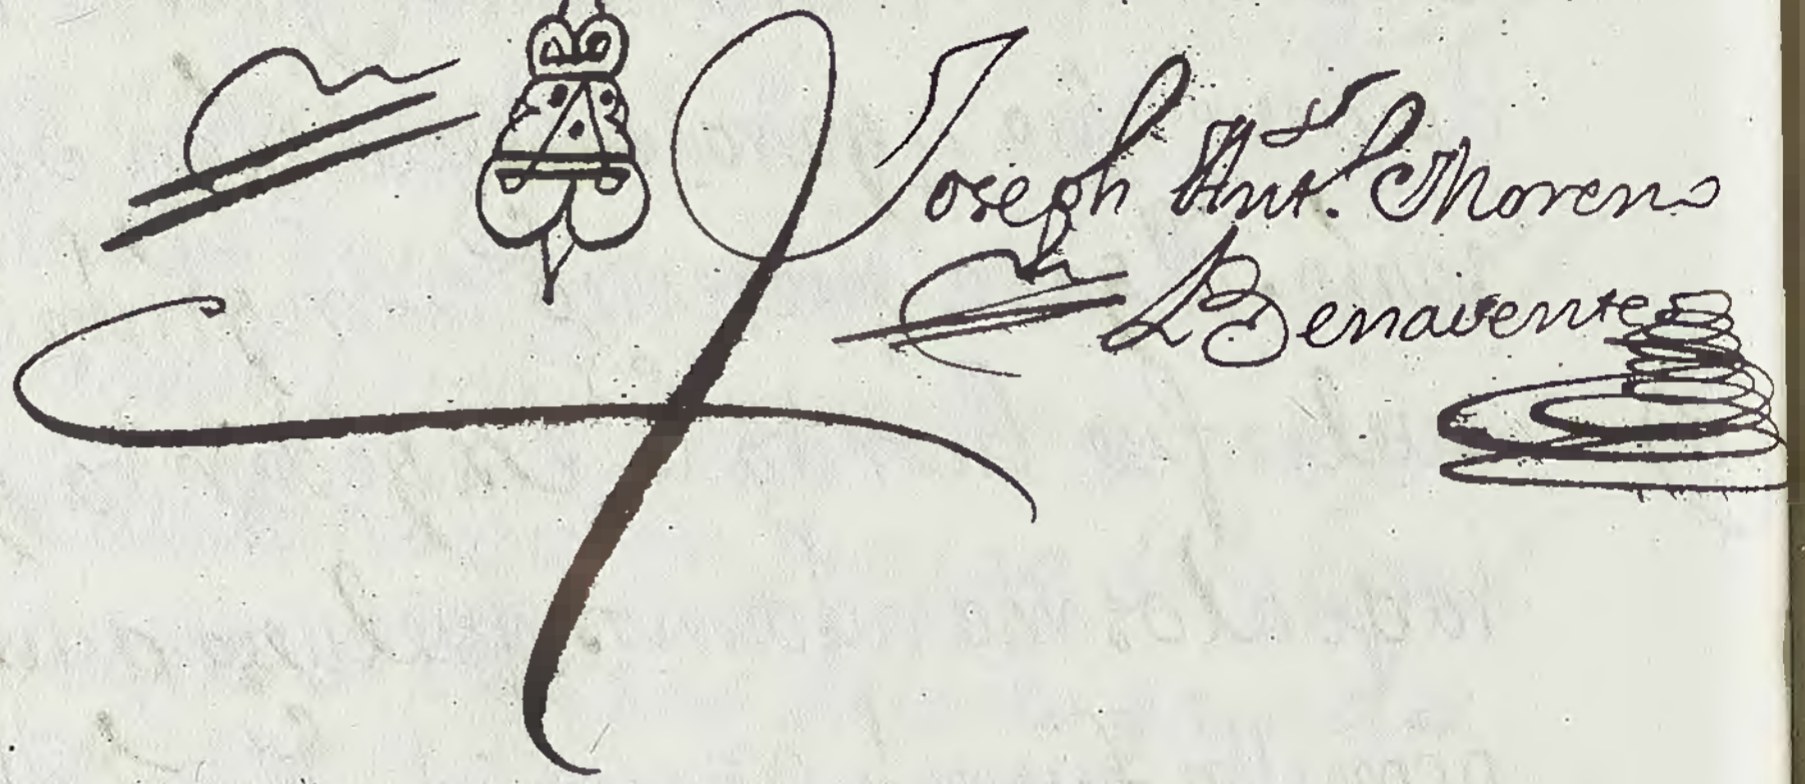 Joseph Antº. Moreno
Benavente